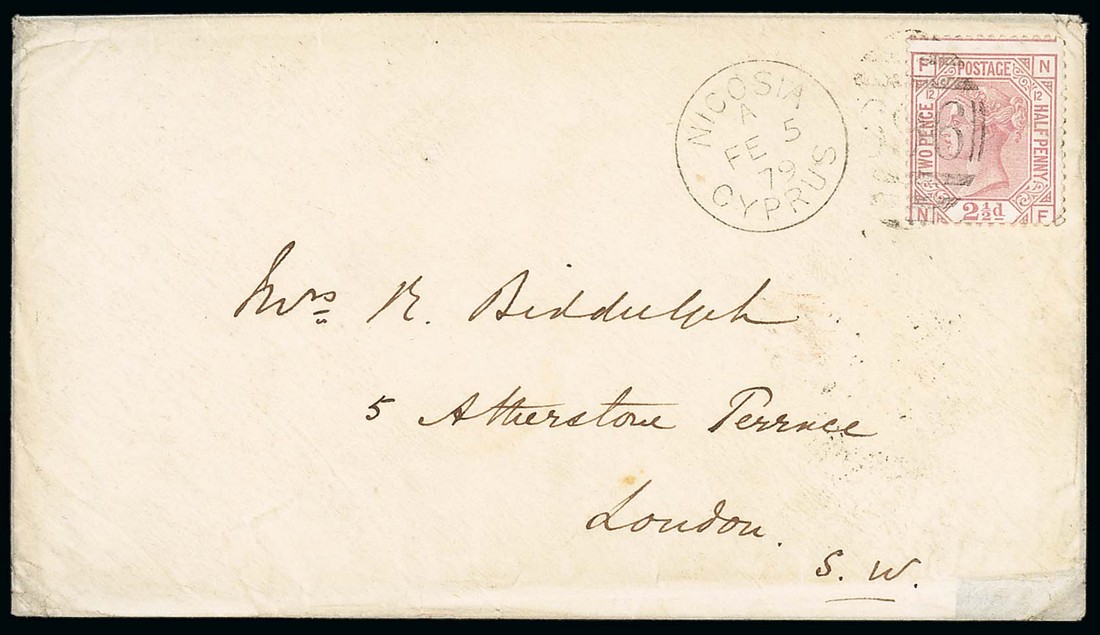 NICOSIA
A
FE 5
79
CYPRUS
F POSTAGE N
12 TWO PENCE
HALFPENNY 12
N 2½d F
Mrs R. Biddulph
5 Atherstone Terrace
London.
S. W.